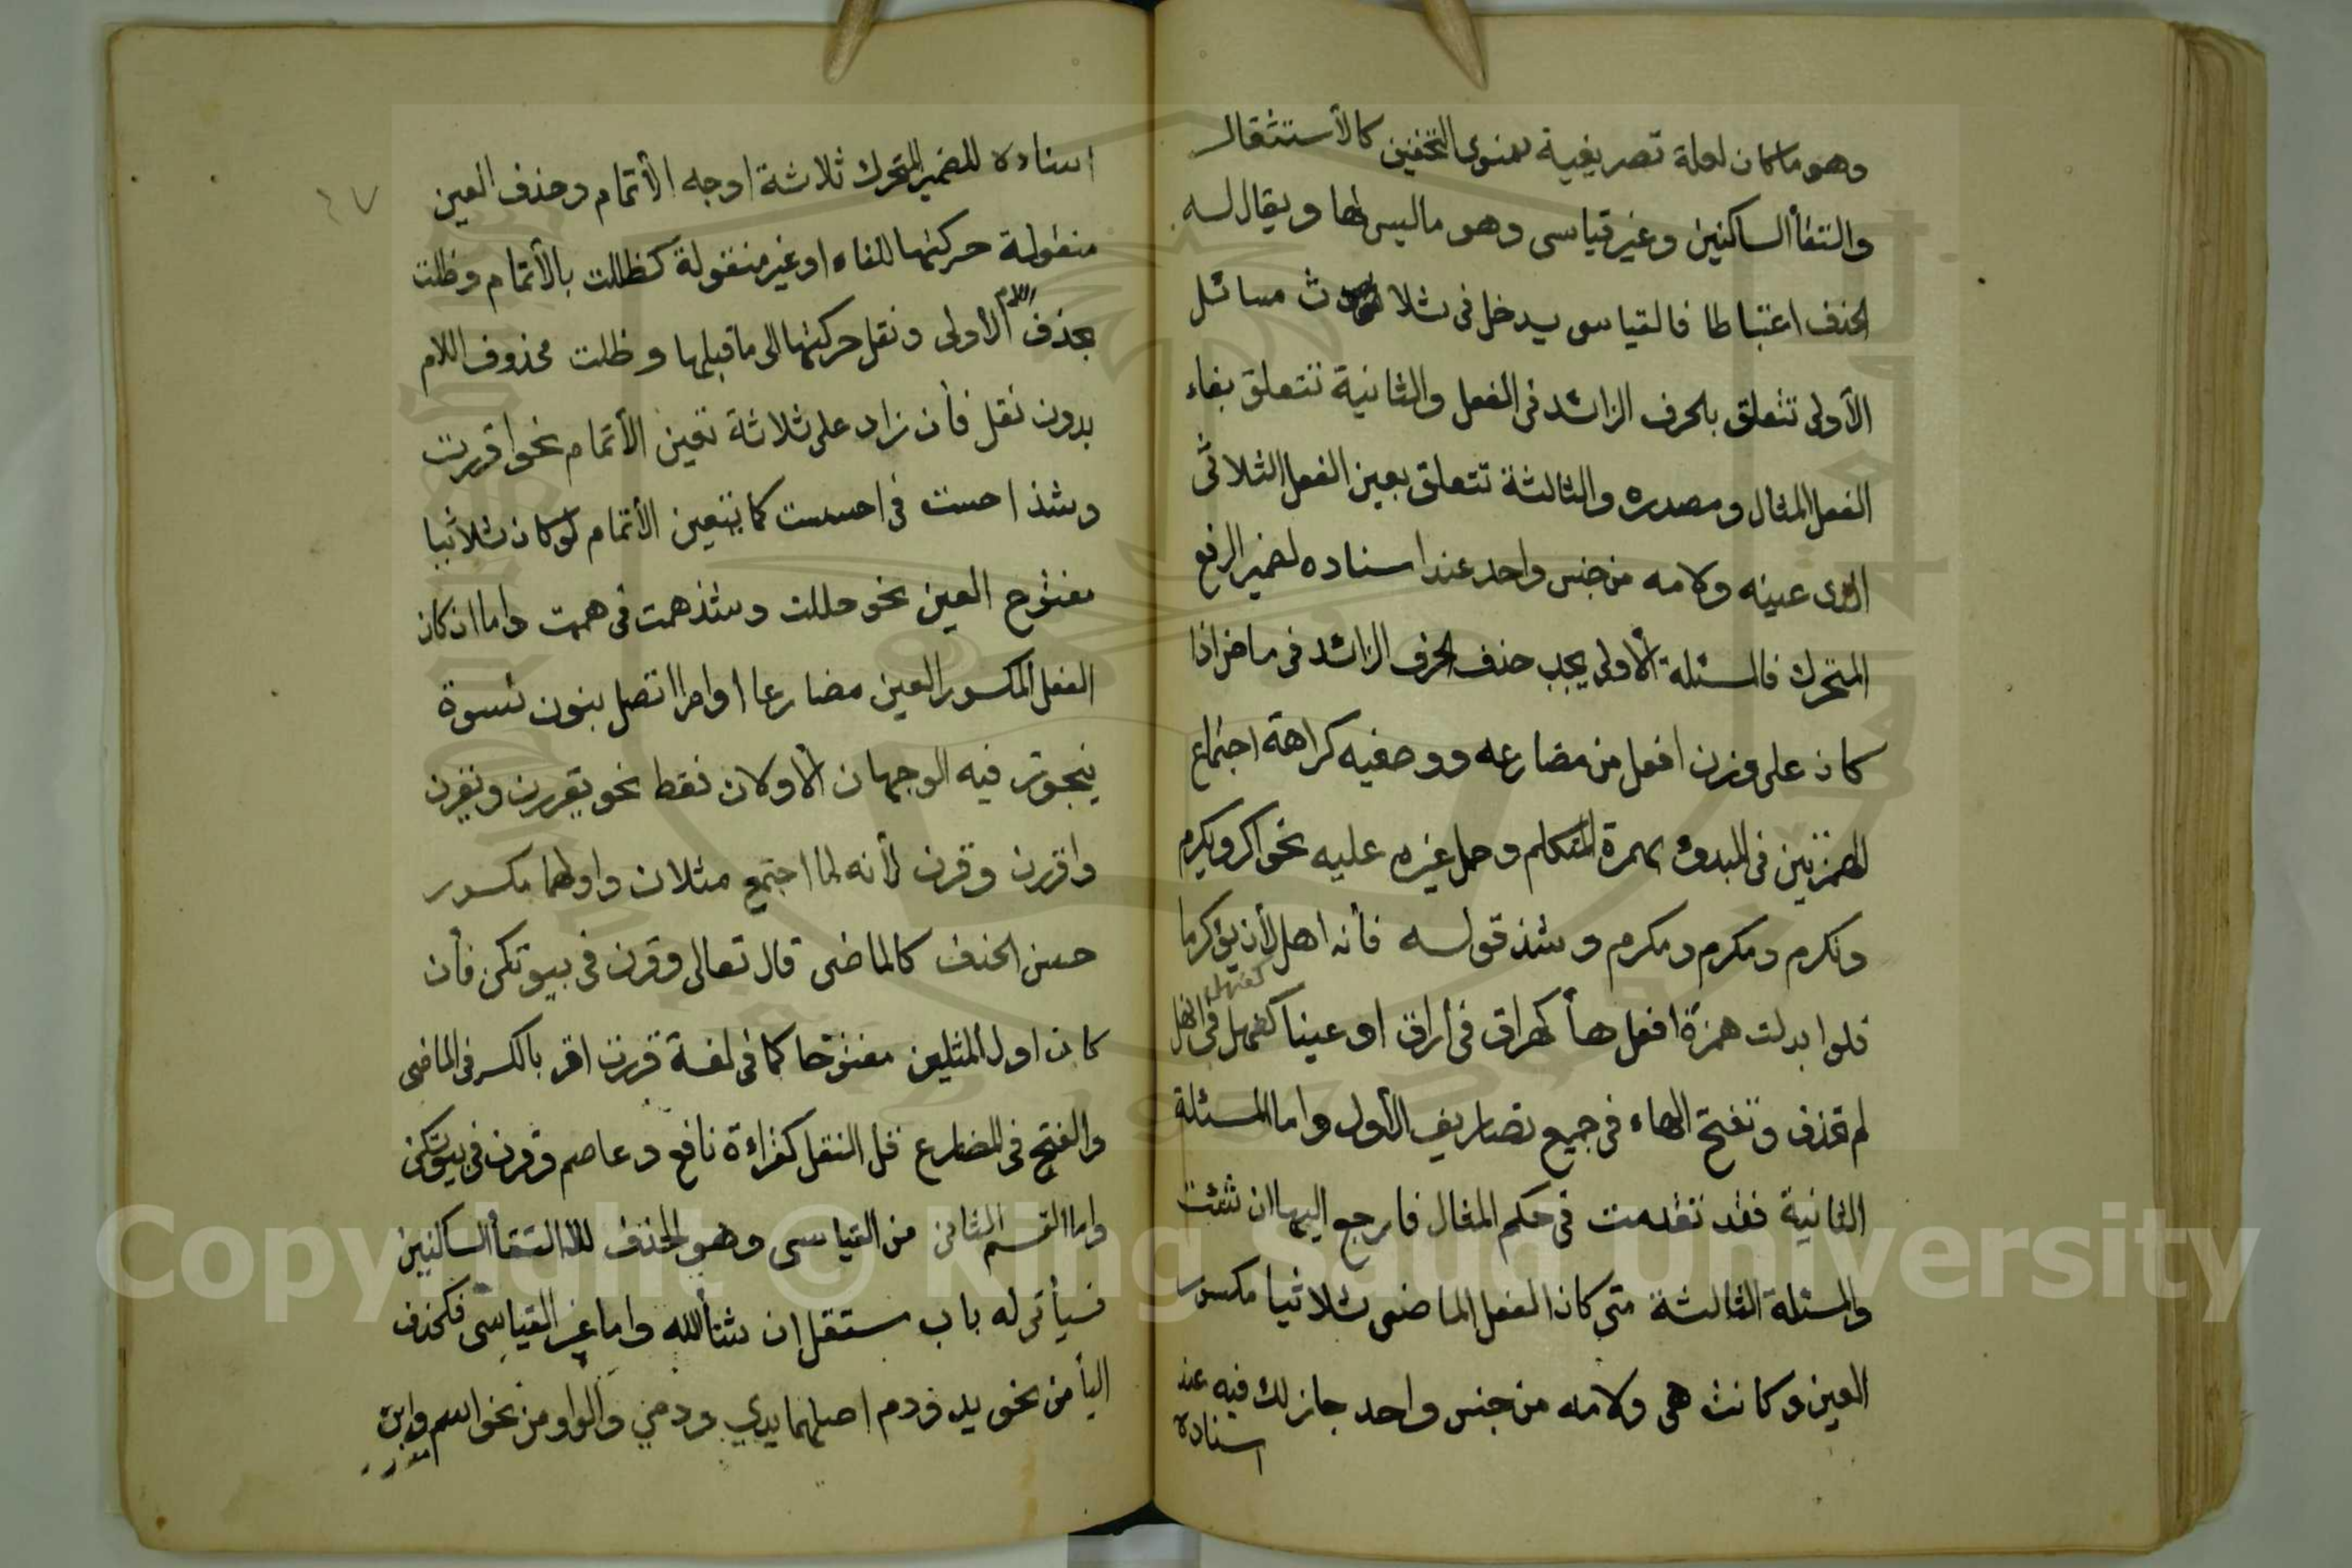 وهو ما كان لعلة تصريفية سوى التخفيف كالأستثقال
والتقأ الساكنين وغير قياسى وهو ما ليس لها ويقال له
الحذف اعتباطا فالقياسى يدخل فى ثلاث مسائل
الأولى تتعلق بالحرف الزائد فى الفعل والثانية تتعلق بفاء
الفعل المثال ومصدره والثالثة تتعلق بعين الفعل الثلاثى
الذى عينه ولامه من جنس واحد عند اسناده لضمير الرفع
المتحرك فالمسئلة الأولى يجب حذف الحرف الزائد فى ماض اذا
كان على وزن افعل من مضارعه ووصفيه كراهة اجتماع
الهمزتين فى المبدوء بهمزة المتكلم وحمل غيره عليه نحو اكرم ويكرم
ونكرم ومكرم ومكرم وشذ قوله فأنه اهل لأن يؤكرما
فلو ابدلت همزة افعل هأ كهراق فى أراق او عينا كعنهل فى انهل
كعنهل
لم تحذف وتفتح الهاء فى جميع تصاريف الأول واما المسئلة
الثانية فقد تقدمت فى حكم المثال فارجع اليها ان شئت
والمسئلة الثالثة متى كان الفعل الماضى ثلاثيا مكسور
العين وكانت هى ولامه من جنس واحد جاز لك فيه عند
اسناده
٤٧
اسناده للضمير المتحرك ثلاثة اوجه الأتمام وحذف العين
منقولة حركتها للفاء او غير منقولة كظللت بالأتمام وظلت
بحذف اللام الأولى ونقل حركتها الى ما قبلها وظلت محذوف اللام
بدون نقل فأن زاد على ثلاثة تعين الأتمام نحو اقررت
وشذ احست فى احسست كما يتعين الأتمام لو كان ثلاثيا
مفتوح العين نحو حللت وشذ همت فى هممت واما ان كان
الفعل المكسور العين مضارعا او امرا اتصل بنون نسوة
فيجوز فيه الوجهان الأولان فقط نحو يقررن ويقرن
واقررن وقرن لأنه لما اجتمع مثلان واولهما مكسور
حسن الحذف كالماضى قال تعالى وقرن فى بيوتكن فأن
كان اول المثلين مفتوحا كما فى لغة قررت اقر بالكسر فى الماضى
والفتح فى المضارع قل النقل كقراءة نافع وعاصم وقرن فى بيوتكن
واما القسم الثانى من القياسى وهو الحذف لالتقأ الساكنين
فسيأتى له باب مستقل ان شأ الله واما غير القياسى فكحذف
اليأ من نحو يد ودم اصلهما يدي ودمي والواو من نحو اسم وابن
Copyright © King Saud University